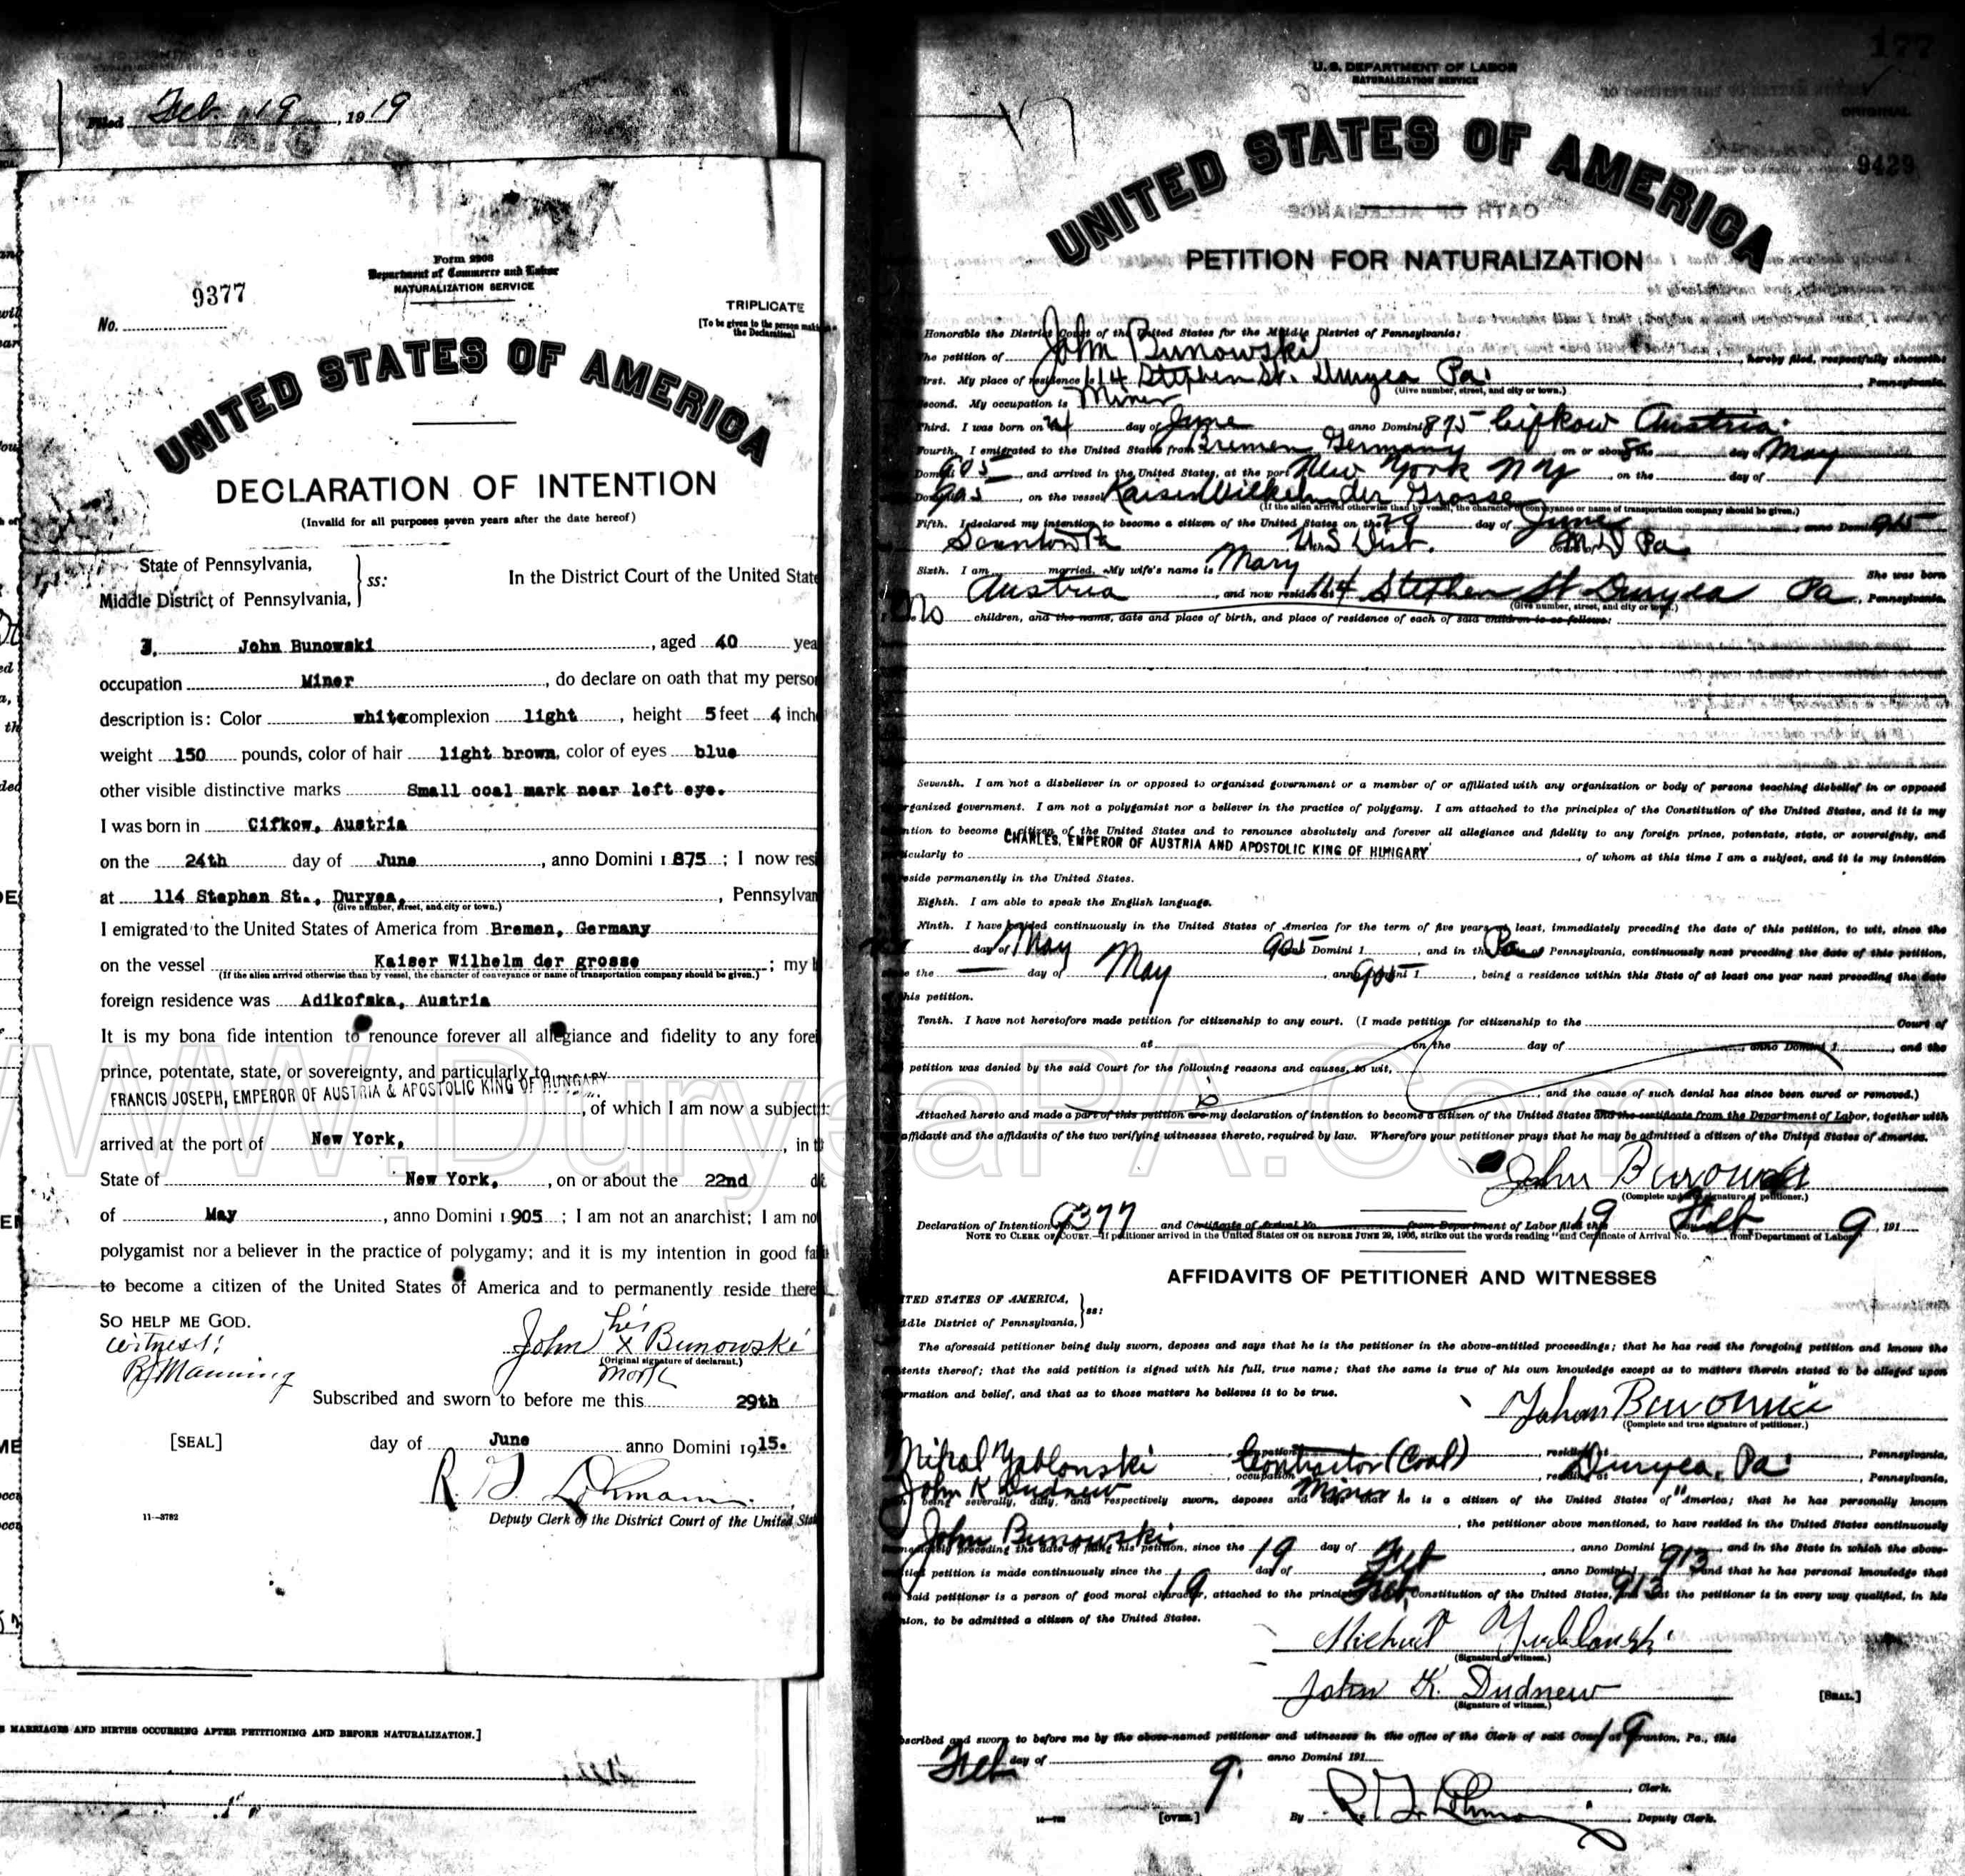 Filed Feb. 19, 1919
No. 9377
Form 2203
Department of Commerce and Labor
NATURALIZATION SERVICE
TRIPLICATE
[To be given to the person making
the Declaration]
UNITED STATES OF AMERICA
DECLARATION OF INTENTION
(Invalid for all purposes seven years after the date hereof)
State of Pennsylvania,
Middle District of Pennsylvania,
ss:
In the District Court of the United State
I, John Bunowski, aged 40 yea
occupation Miner, do declare on oath that my person
description is: Color white complexion light, height 5 feet 4 inch
weight 150 pounds, color of hair light brown, color of eyes blue
other visible distinctive marks Small coal mark near left eye.
I was born in Cifkow, Austria
on the 24th day of June, anno Domini 1 875; I now resi
at 114 Stephen St., Duryea, Pennsylvan
(Give number, street, and city or town.)
I emigrated to the United States of America from Bremen, Germany
on the vessel Kaiser Wilhelm der grosse; my l
(If the alien arrived otherwise than by vessel, the character of conveyance or name of transportation company should be given.)
foreign residence was Adikofska, Austria
It is my bona fide intention to renounce forever all allegiance and fidelity to any forei
prince, potentate, state, or sovereignty, and particularly to
FRANCIS JOSEPH, EMPEROR OF AUSTRIA & APOSTOLIC KING OF HUNGARY
, of which I am now a subject;
arrived at the port of New York, in t
State of New York, on or about the 22nd d
of May, anno Domini 1 905; I am not an anarchist; I am no
polygamist nor a believer in the practice of polygamy; and it is my intention in good fait
to become a citizen of the United States of America and to permanently reside there
SO HELP ME GOD.
witness:
R J Manning
his
John x Bunowski
(Original signature of declarant.)
mark
Subscribed and sworn to before me this 29th
[SEAL] day of June anno Domini 1915.
11—3782
Deputy Clerk of the District Court of the United Stat
S MARRIAGES AND BIRTHS OCCURRING AFTER PETITIONING AND BEFORE NATURALIZATION.]
177
U. S. DEPARTMENT OF LABOR
NATURALIZATION SERVICE
ORIGINAL
9429
UNITED STATES OF AMERICA
PETITION FOR NATURALIZATION
Honorable the District Court of the United States for the Middle District of Pennsylvania:
The petition of John Bunowski, hereby filed, respectfully showeth:
First. My place of residence is 114 Stephen St. Duryea Pa., Pennsylvania.
(Give number, street, and city or town.)
Second. My occupation is Miner
Third. I was born on 24 day of June anno Domini 875 Cifkow Austria
Fourth. I emigrated to the United States from Bremen Germany on or about the day of May
Domini 905 and arrived in the United States, at the port New York N Y, on the day of
Domini 905, on the vessel Kaiser Wilhelm der Grosse
(If the alien arrived otherwise than by vessel, the character of conveyance or name of transportation company should be given.)
Fifth. I declared my intention to become a citizen of the United States on the 29 day of June, anno Domini 915
Scranton Pa U S Dist. M D Pa
Sixth. I am married. My wife's name is Mary She was born
Austria, and now resides at 114 Stephen St Duryea Pa, Pennsylvania.
(Give number, street, and city or town.)
No children, and the name, date and place of birth, and place of residence of each of said children is as follows:
Seventh. I am not a disbeliever in or opposed to organized government or a member of or affiliated with any organization or body of persons teaching disbelief in or opposed
organized government. I am not a polygamist nor a believer in the practice of polygamy. I am attached to the principles of the Constitution of the United States, and it is my
ntion to become a citizen of the United States and to renounce absolutely and forever all allegiance and fidelity to any foreign prince, potentate, state, or sovereignty, and
icularly to CHARLES, EMPEROR OF AUSTRIA AND APOSTOLIC KING OF HUNGARY, of whom at this time I am a subject, and it is my intention
eside permanently in the United States.
Eighth. I am able to speak the English language.
Ninth. I have resided continuously in the United States of America for the term of five years at least, immediately preceding the date of this petition, to wit, since the
day of May 905 Domini 1, and in the Pa of Pennsylvania, continuously next preceding the date of this petition,
the day of May, anno Domini 1 905, being a residence within this State of at least one year next preceding the date
this petition.
Tenth. I have not heretofore made petition for citizenship to any court. (I made petition for citizenship to the Court of
at on the day of, anno Domini 1, and the
petition was denied by the said Court for the following reasons and causes, to wit,
, and the cause of such denial has since been cured or removed.)
is
Attached hereto and made a part of this petition are my declaration of intention to become a citizen of the United States and the certificate from the Department of Labor, together with
affidavit and the affidavits of the two verifying witnesses thereto, required by law. Wherefore your petitioner prays that he may be admitted a citizen of the United States of America.
(Complete and true signature of petitioner.)
Declaration of Intention No. 9377 and Certificate of Arrival No. from Department of Labor filed this 19 Feb. 9, 191
NOTE TO CLERK OF COURT.—If petitioner arrived in the United States ON OR BEFORE JUNE 29, 1906, strike out the words reading "and Certificate of Arrival No. from Department of Labor"
AFFIDAVITS OF PETITIONER AND WITNESSES
ITED STATES OF AMERICA,
ddle District of Pennsylvania,
ss:
The aforesaid petitioner being duly sworn, deposes and says that he is the petitioner in the above-entitled proceedings; that he has read the foregoing petition and knows the
tents thereof; that the said petition is signed with his full, true name; that the same is true of his own knowledge except as to matters therein stated to be alleged upon
ormation and belief, and that as to those matters he believes it to be true.
(Complete and true signature of petitioner.)
Yablonski, occupation Contractor (Coal), residing at Duryea, Pa, Pennsylvania,
John K Dudnew, occupation Miner, residing at " , Pennsylvania,
being severally, duly, and respectively sworn, deposes and says that he is a citizen of the United States of America; that he has personally known
John Bunowski, the petitioner above mentioned, to have resided in the United States continuously
immediately preceding the date of filing his petition, since the 19 day of Feb, anno Domini 1 913, and in the State in which the above-
entitled petition is made continuously since the 19 day of Feb, anno Domini 1 913 and that he has personal knowledge that
said petitioner is a person of good moral character, attached to the principles of the Constitution of the United States, and that the petitioner is in every way qualified, in his
nion, to be admitted a citizen of the United States.
(Signature of witness.)
John K. Dudnew
(Signature of witness.)
[SEAL.]
bscribed and sworn to before me by the above-named petitioner and witnesses in the office of the Clerk of said Court at Scranton, Pa., this 19
Feb day of anno Domini 191 9.
, Clerk.
[OVER.]
By , Deputy Clerk.
WWW.DuryeaPA.Com